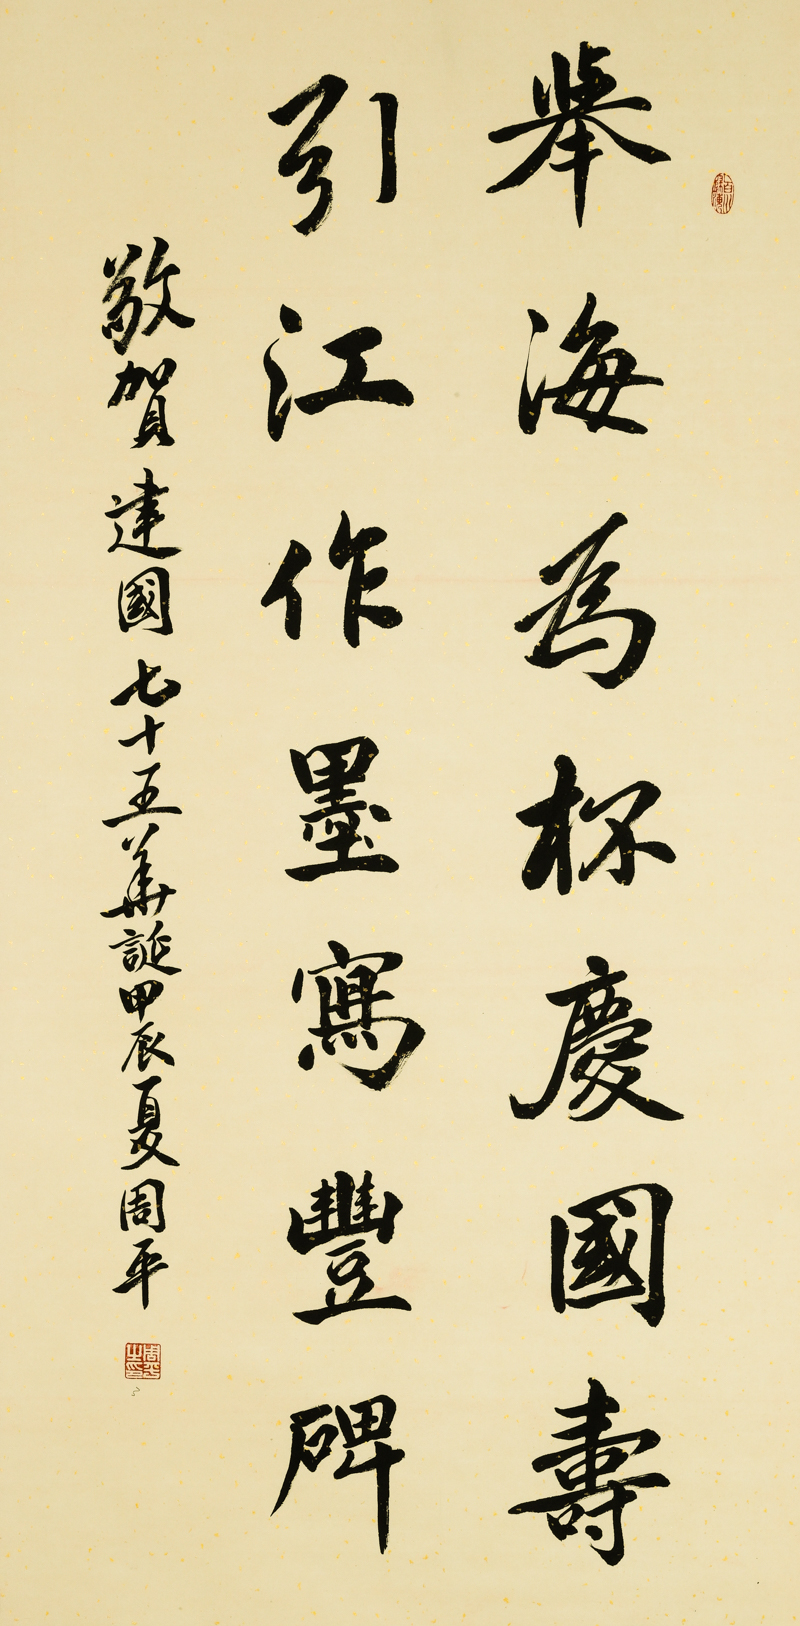 舉海為杯慶國壽
引江作墨寫豐碑
敬賀建國七十五華誕甲辰夏周平
周平之印